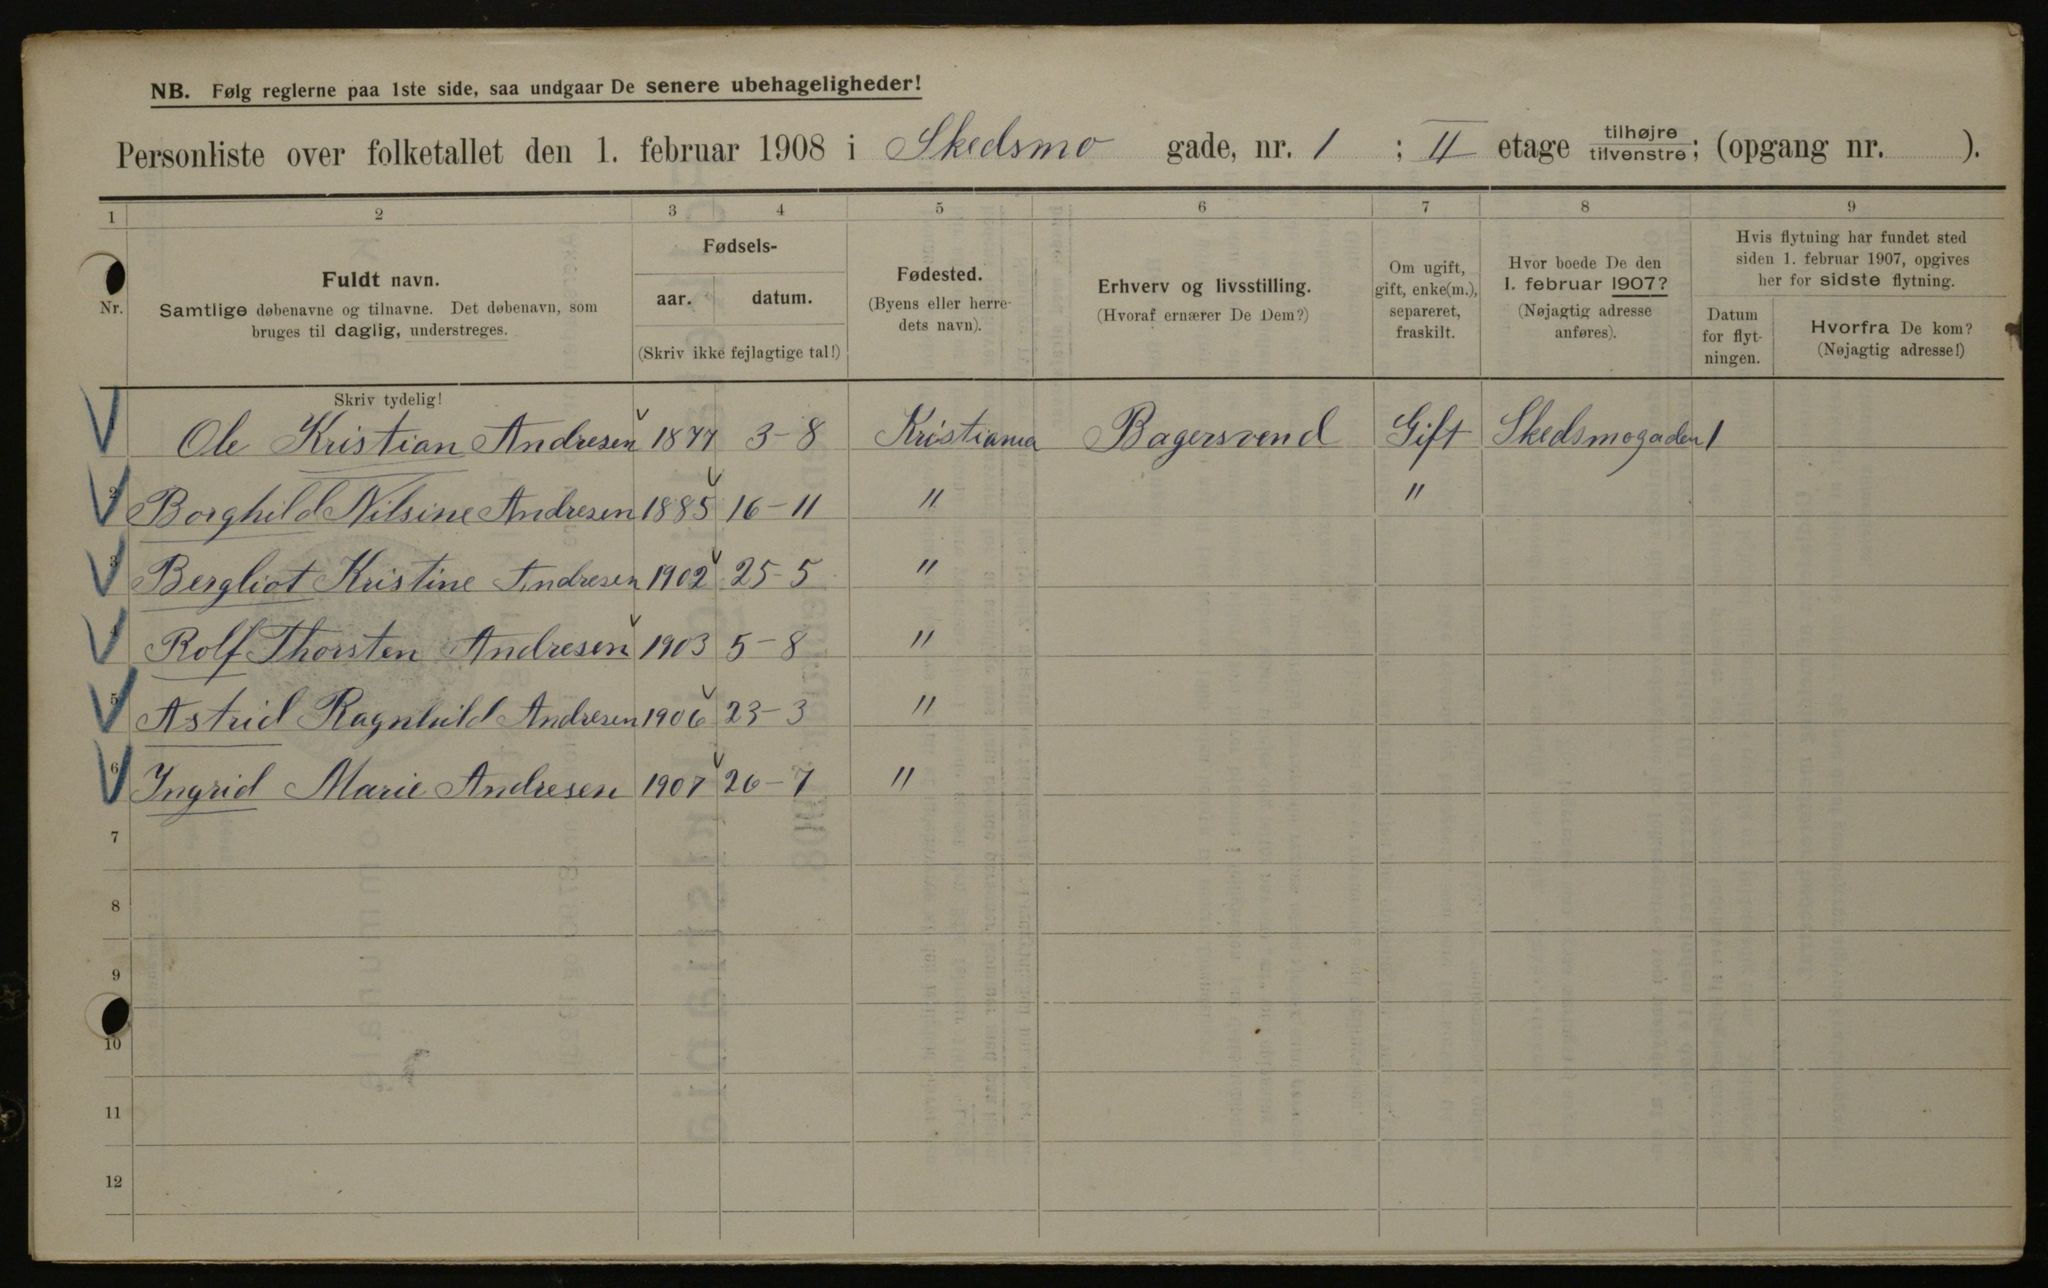 NB. Følg reglerne paa 1ste side, saa undgaar De senere ubehageligheder!
Personliste over folketallet den 1. februar 1908 i Skedsmo gade, nr. 1 ; II etage tilhøjre/tilvenstre; (opgang nr. ).
1 2 3 4 5 6 7 8 9
Nr.
Fuldt navn.
Samtlige døbenavne og tilnavne. Det døbenavn, som
bruges til daglig, understreges.
Fødsels-
aar. datum.
(Skriv ikke fejlagtige tal!)
Fødested.
(Byens eller herre-
dets navn).
Erhverv og livsstilling.
(Hvoraf ernærer De Dem?)
Om ugift,
gift, enke(m.),
separeret,
fraskilt.
Hvor boede De den
1. februar 1907?
(Nøjagtig adresse
anføres).
Hvis flytning har fundet sted
siden 1. februar 1907, opgives
her for sidste flytning.
Datum
for flyt-
ningen.
Hvorfra De kom?
(Nøjagtig adresse!)
Skriv tydelig!
Ole Kristian Andresen 1877 3-8 Kristiania Bagersvend Gift Skedsmogaden 1
2 Borghild Nilsine Andresen 1885 16-11 " "
3 Bergliot Kristine Andresen 1902 25-5 "
4 Rolf Thorsten Andresen 1903 5-8 "
5 Astrid Ragnhild Andresen 1906 23-3 "
6 Ingrid Marie Andresen 1907 26-7 "
7
8
9
10
11
12